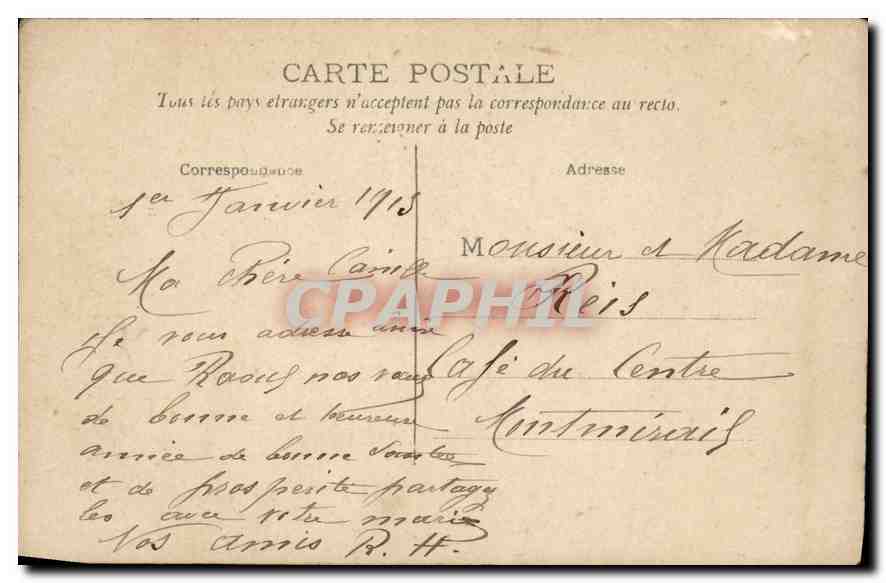 CARTE POSTALE
Tous les pays etrangers n'acceptent pas la correspondance au recto.
Se renseigner à la poste
Correspondance
Adresse
1er Janvier 1913
Ma chère Camille
Je vous adresse ainsi
que Raoul nos vœux
de bonne et heureuse
année de bonne Santee
et de prosperite partagez
les avec votre mari
Vos amis R. H.
Monsieur et Madame
Reis
Café du Centre
Montmirail
CPAPHIL